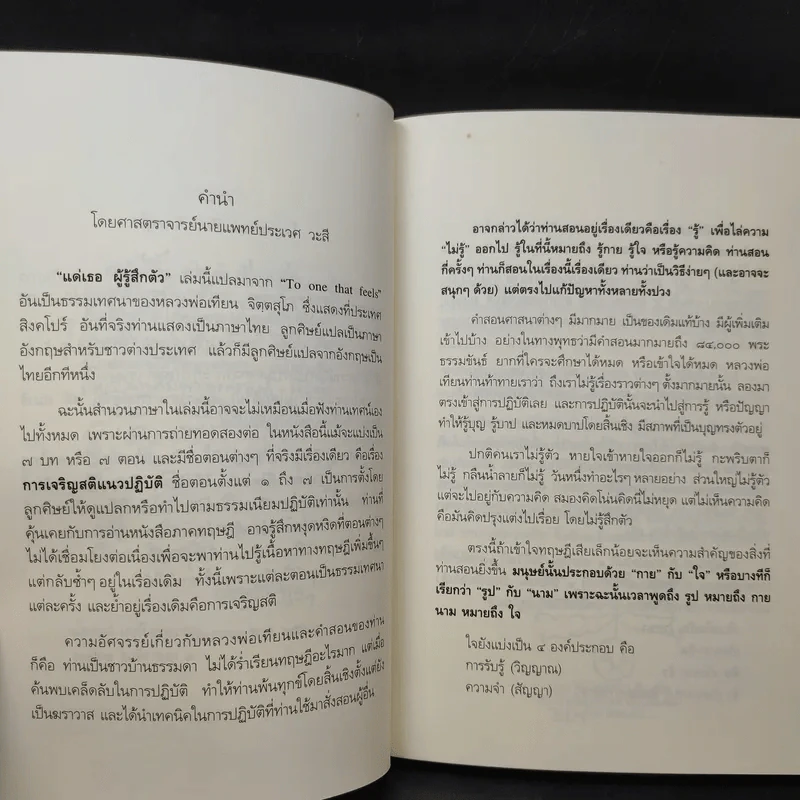 คำนำ
โดยศาสตราจารย์นายแพทย์ประเวศ วะสี
“แด่เธอ ผู้รู้สึกตัว” เล่มนี้แปลมาจาก “To one that feels”
อันเป็นธรรมเทศนาของหลวงพ่อเทียน จิตฺตสุโภ ซึ่งแสดงที่ประเทศ
สิงคโปร์ อันที่จริงท่านแสดงเป็นภาษาไทย ลูกศิษย์แปลเป็นภาษา
อังกฤษสำหรับชาวต่างประเทศ แล้วก็มีลูกศิษย์แปลจากอังกฤษเป็น
ไทยอีกทีหนึ่ง
ฉะนั้นสำนวนภาษาในเล่มนี้อาจจะไม่เหมือนเมื่อฟังท่านเทศน์เอง
ไปทั้งหมด เพราะผ่านการถ่ายทอดสองต่อ ในหนังสือนี้แม้จะแบ่งเป็น
๗ บท หรือ ๗ ตอน และมีชื่อตอนต่างๆ ที่จริงมีเรื่องเดียว คือเรื่อง
การเจริญสติแนวปฏิบัติ ชื่อตอนตั้งแต่ ๑ ถึง ๗ เป็นการตั้งโดย
ลูกศิษย์ให้ดูแปลกหรือทำไปตามธรรมเนียมปฏิบัติเท่านั้น ท่านที่
คุ้นเคยกับการอ่านหนังสือภาคทฤษฎี อาจรู้สึกหงุดหงิดที่ตอนต่างๆ
ไม่ได้เชื่อมโยงต่อเนื่องเพื่อจะพาท่านไปรู้เนื้อหาทางทฤษฎีเพิ่มขึ้นๆ
แต่กลับซ้ำๆ อยู่ในเรื่องเดิม ทั้งนี้เพราะแต่ละตอนเป็นธรรมเทศนา
แต่ละครั้ง และย้ำอยู่เรื่องเดิมคือการเจริญสติ
ความอัศจรรย์เกี่ยวกับหลวงพ่อเทียนและคำสอนของท่าน
ก็คือ ท่านเป็นชาวบ้านธรรมดา ไม่ได้ร่ำเรียนทฤษฎีอะไรมาก แต่เมื่อ
ค้นพบเคล็ดลับในการปฏิบัติ ทำให้ท่านพ้นทุกข์โดยสิ้นเชิงตั้งแต่ยัง
เป็นฆราวาส และได้นำเทคนิคในการปฏิบัติที่ท่านใช้มาสั่งสอนผู้อื่น
อาจกล่าวได้ว่าท่านสอนอยู่เรื่องเดียวคือเรื่อง “รู้” เพื่อไล่ความ
“ไม่รู้” ออกไป รู้ในที่นี้หมายถึง รู้กาย รู้ใจ หรือรู้ความคิด ท่านสอน
กี่ครั้งๆ ท่านก็สอนในเรื่องนี้เรื่องเดียว ท่านว่าเป็นวิธีง่ายๆ (และอาจจะ
สนุกๆ ด้วย) แต่ตรงไปแก้ปัญหาทั้งหลายทั้งปวง
คำสอนศาสนาต่างๆ มีมากมาย เป็นของเดิมแท้บ้าง มีผู้เพิ่มเติม
เข้าไปบ้าง อย่างในทางพุทธว่ามีคำสอนมากมายถึง ๘๔,๐๐๐ พระ
ธรรมขันธ์ ยากที่ใครจะศึกษาได้หมด หรือเข้าใจได้หมด หลวงพ่อ
เทียนท่านท้าทายเราว่า ถึงเราไม่รู้เรื่องราวต่างๆ ตั้งมากมายนั้น ลองมา
ตรงเข้าสู่การปฏิบัติเลย และการปฏิบัตินั้นจะนำไปสู่การรู้ หรือปัญญา
ทำให้รู้บุญ รู้บาป และหมดบาปโดยสิ้นเชิง มีสภาพที่เป็นบุญทรงตัวอยู่
ปกติคนเราไม่รู้ตัว หายใจเข้าหายใจออกก็ไม่รู้ กะพริบตาก็
ไม่รู้ กลืนน้ำลายก็ไม่รู้ วันหนึ่งทำอะไรๆ หลายอย่าง ส่วนใหญ่ไม่รู้ตัว
แต่จะไปอยู่กับความคิด สมองคิดโน่นคิดนี่ไม่หยุด แต่ไม่เห็นความคิด
คือมันคิดปรุงแต่งไปเรื่อย โดยไม่รู้สึกตัว
ตรงนี้ถ้าเข้าใจทฤษฎีเสียเล็กน้อยจะเห็นความสำคัญของสิ่งที่
ท่านสอนยิ่งขึ้น มนุษย์นั้นประกอบด้วย “กาย” กับ “ใจ” หรือบางทีก็
เรียกว่า “รูป” กับ “นาม” เพราะฉะนั้นเวลาพูดถึง รูป หมายถึง กาย
นาม หมายถึง ใจ
ใจยังแบ่งเป็น ๔ องค์ประกอบ คือ
การรับรู้ (วิญญาณ)
ความจำ (สัญญา)